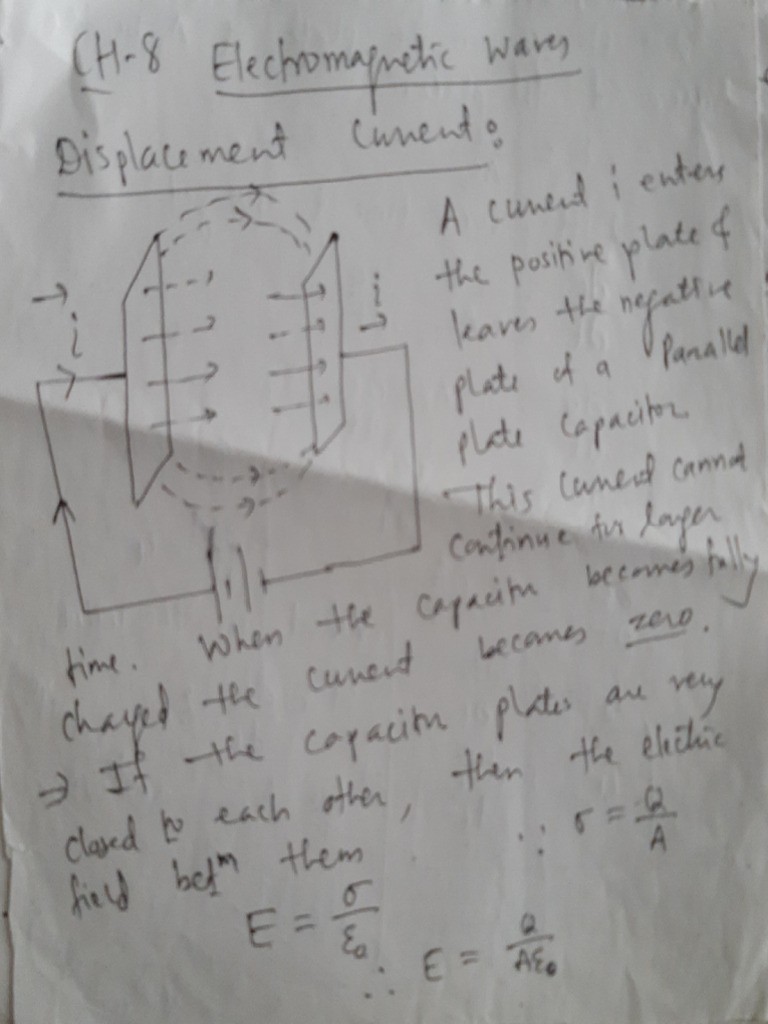 CH-8 Electromagnetic Waves
Displacement Current :
A current i enters
the positive plate &
leaves the negative
plate of a Parallel
plate Capacitor
This current cannot
continue for larger
time. When the capacitor becomes fully
charged the current becomes zero.
⇒ If the capacitor plates are very
closed to each other, then the electric
field betⁿ them
∵ σ = Q/A
E = σ/ε₀
∴ E = Q/Aε₀
i
i